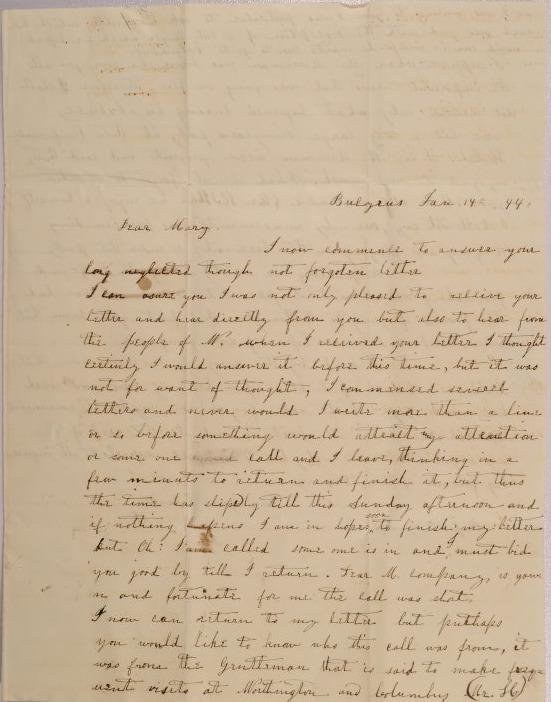 Bulgrus Jan 14th 44.
Dear Mary.
I now commence to answer your
long neglected though not forgotten letter
I can asure you I was not only pleased to reccive your
letter and hear directly from you but also to hear from
the people of W. when I recieved your letter I thought
certinly I would answer it before this time, but it was
not for want of thought, I commensed severel
letters and never would I write more than a line
or so before something would attract my attention
or some one would call and I leave, thinking in a
few minuts to return and finish it, but thus
the time has slipd by till this Sunday afternoon and
if nothing I am in hopes soon to finish my letter
but Oh: I am called some one is in and I must bid
you good by till I return. Dear M. company, is gown
n and fortunate for me the call was shot.
I now can return to my letter but purhaps
you would like to know who this call was from, it
was from the Gentleman that is said to make freq
uent visits at Worthington and Columbus